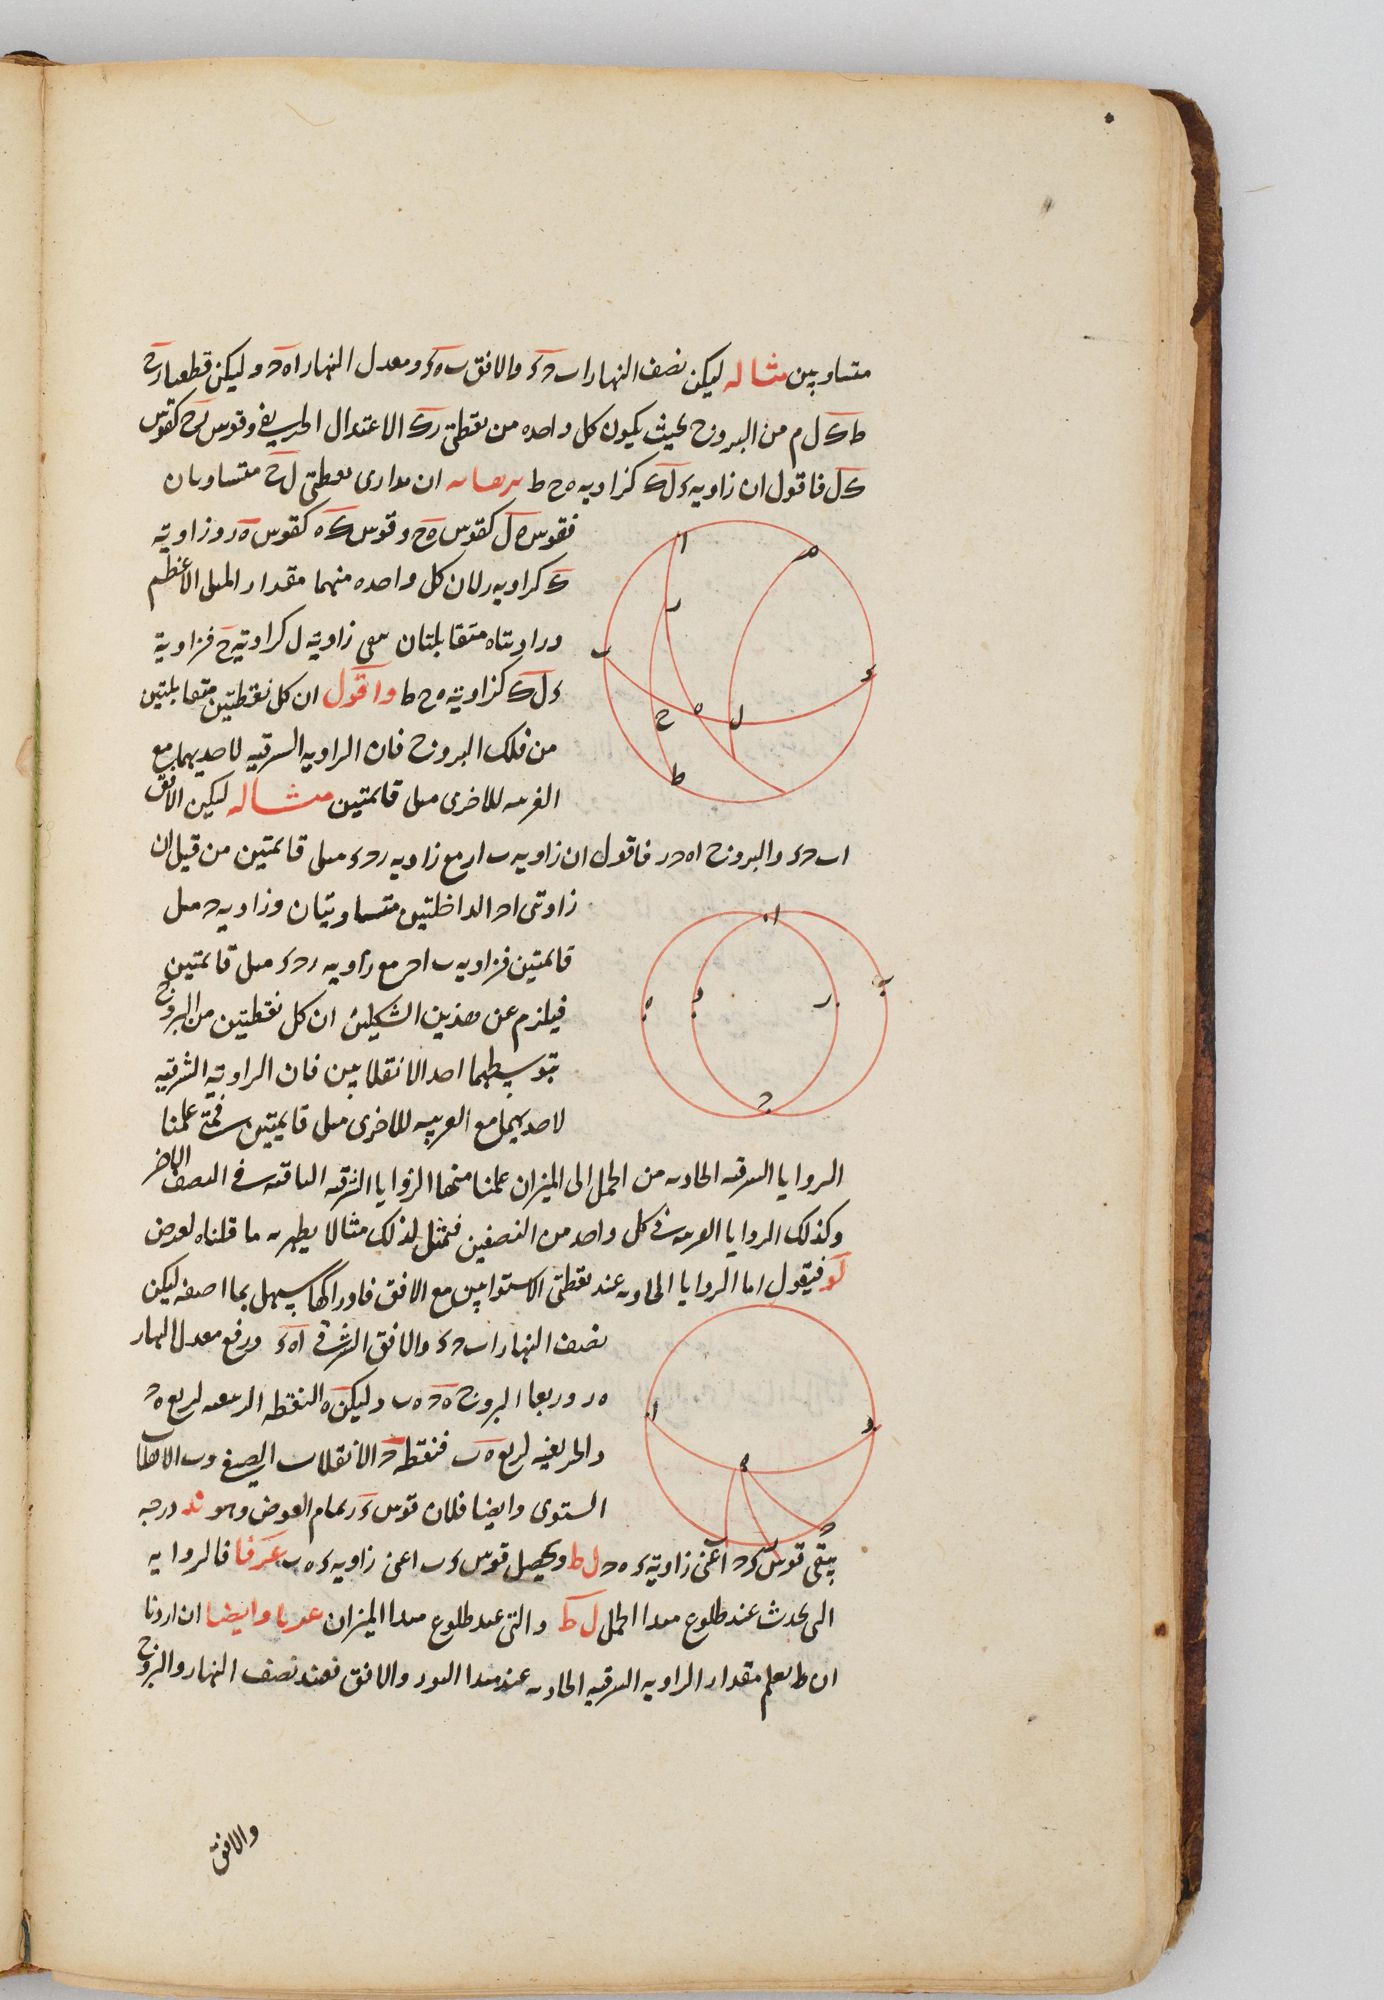 متساويين مثاله ليكن نصف النهار اب حد والافق ب ه د ومعدل النهار ا ه ح وليكن قطعتا ر ح
ط ك ل م من البروج بحيث يكون كل واحده من نقطتى ر ك الاعتدال الخريفى وقوس ر ح كقوس
ك ل فاقول ان زاويه د ل ك كزاويه ه ح ط برهانه ان مدارى نقطتى ل ح متساويان
فقوس ه ل كقوس ه ح وقوس ك ه كقوس ه ر وزاوية
ك كزاويه ر لان كل واحده منهما مقدار الميل الاعظم
وزاويتا ه متقابلتان فبقى زاوية ل كزاوية ح فزاوية
د ل ك كزاوية ه ح ط واقول ان كل نقطتين متقابلتين
من فلك البروج فان الزاويه الشرقيه لاحديهما مع
الغربيه للاخرى مثل قائمتين مثاله ليكن الافق
اب حد والبروج ا ه ح ر فاقول ان زاويه ب ا ر مع زاويه ر ح د مثل قائمتين من قبل ان
زاويتى ا ح الداخلتين متساويتان وزاويه ح مثل
قائمتين فزاويه ب ا ر مع زاويه ر ح د مثل قائمتين
فيلزم عن هذين الشكلين ان كل نقطتين من البروج
يتوسطهما احد الانقلابين فان الزاوية الشرقيه
لاحديهما مع الغربيه للاخرى مثل قايمتين فمتى علمنا
الزوايا الشرقيه الحادثه من الحمل الى الميزان علمنا منها الزوايا الشرقيه الباقيه فى النصف الاخر
وكذلك الزوايا الغربيه فى كل واحد من النصفين فنمثل لذلك مثالا يظهر به ما قلناه لعرض
لو فيقول اما الزوايا الحادثه عند نقطتى الاستوايين مع الافق فادراكها يسهل بما اصفه ليكن
نصف النهار اب حد والافق الشرقى ا ه د وربع معدل النهار
ه ر وربعا البروج ه ح ه ب وليكن ه النقطه الربيعيه لربع ه ح
والخريفيه لربع ه ب فنقطه ح الانقلاب الصيفى وب الانقلاب
الستوى وايضا فلان قوس د ر تمام العرض وهو ند درجه
يبقى قوس د ح اعنى زاوية د ه ح ل ط ويحصل قوس د ب اعنى زاويه د ه ب عز نا فالزوايه
التى تحدث عند طلوع مبدا الحمل ل ط والتى عند طلوع مبدا الميزان عز نا وايضا ان اردنا
ان نعلم مقدار الزاويه الشرقيه الحادثه عند مبدا الثور والافق فعند نصف النهار والبروج
والافق